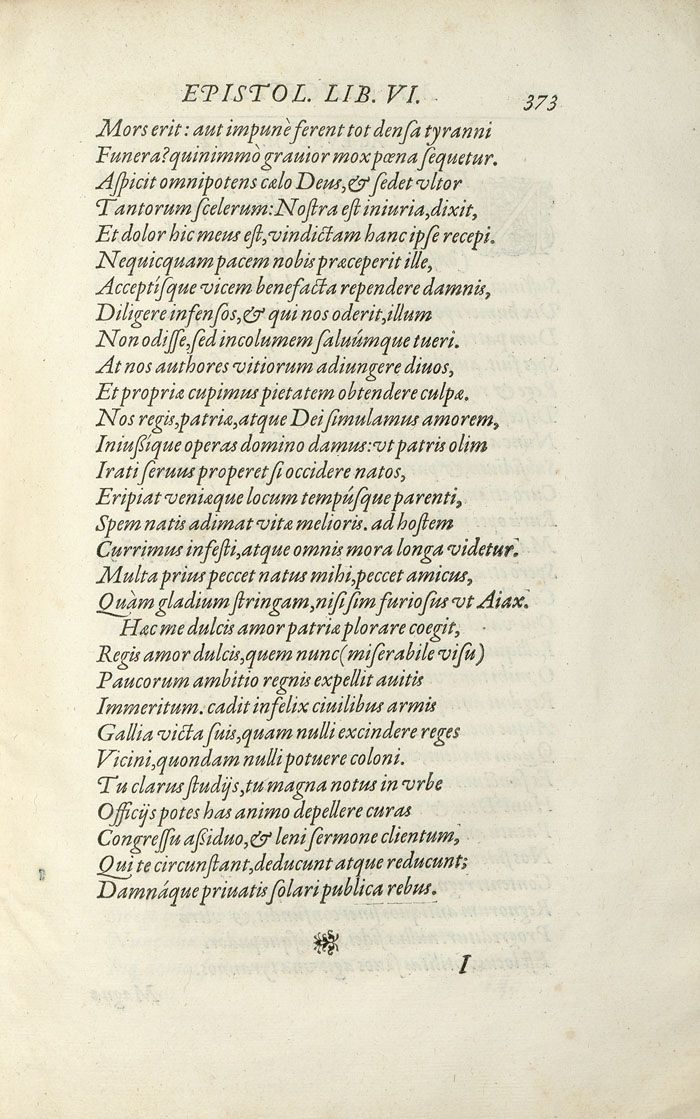 EPISTOL. LIB. VI. 373
Mors erit: aut impunè ferent tot densa tyranni
Funera? quinimmò grauior mox pœna sequetur.
Aspicit omnipotens cælo Deus, & sedet vltor
Tantorum scelerum: Nostra est iniuria, dixit,
Et dolor hic meus est, vindictam hanc ipse recepi.
Nequicquam pacem nobis præceperit ille,
Acceptisque vicem benefacta rependere damnis,
Diligere infensos, & qui nos oderit, illum
Non odisse, sed incolumem saluúmque tueri.
At nos authores vitiorum adiungere diuos,
Et propriæ cupimus pietatem obtendere culpæ.
Nos regis, patriæ, atque Dei simulamus amorem,
Iniussíque operas domino damus: vt patris olim
Irati seruus properet si occidere natos,
Eripiat veniæque locum tempúsque parenti,
Spem natis adimat vitæ melioris. ad hostem
Currimus infesti, atque omnis mora longa videtur.
Multa prius peccet natus mihi, peccet amicus,
Quàm gladium stringam, nisi sim furiosus vt Aiax.
Hæc me dulcis amor patriæ plorare coegit,
Regis amor dulcis, quem nunc (miserabile visu)
Paucorum ambitio regnis expellit auitis
Immeritum. cadit infelix ciuilibus armis
Gallia victa suis, quam nulli excindere reges
Vicini, quondam nulli potuere coloni.
Tu clarus studijs, tu magna notus in vrbe
Officijs potes has animo depellere curas
Congressu assiduo, & leni sermone clientum,
Qui te circunstant, deducunt atque reducunt;
Damnáque priuatis solari publica rebus.
I